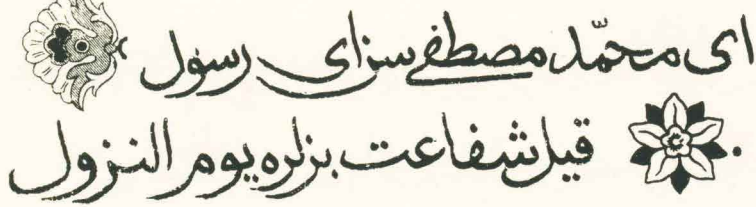 ای محمّد مصطفی سزای رسول
قیل شفاعت بزلره یوم النزول